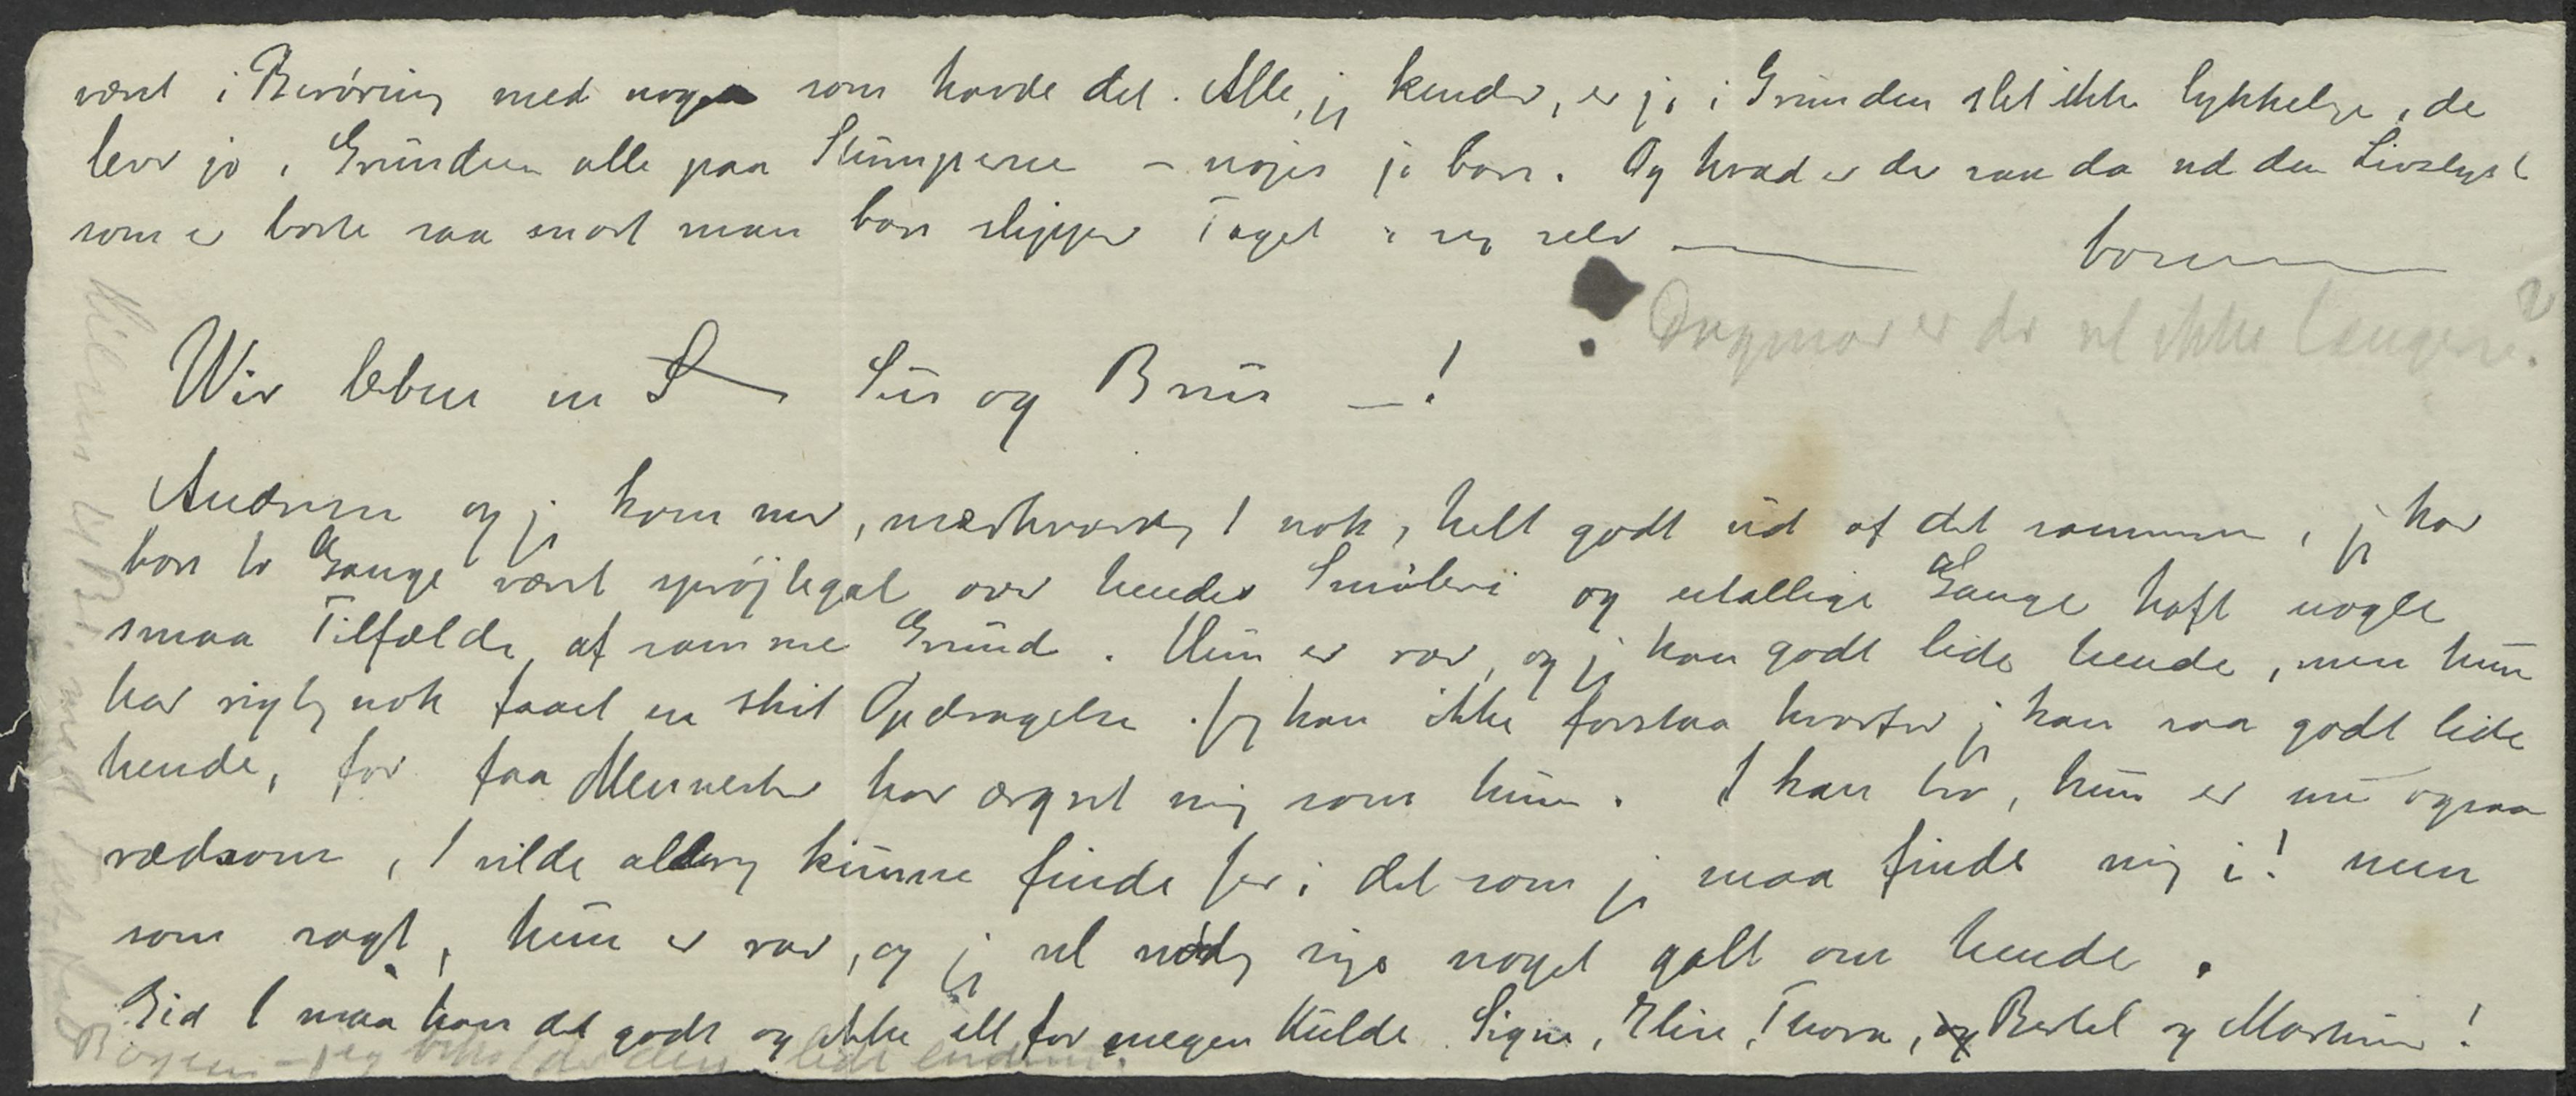 været i Berøring med nogen som havde det. Alle, jeg kender, er jo i Grunden slet ikke lykkelige, de
lever jo i Grunden alle paa Stumperne – nøjes jo bare. Og hvad er der saa da ved den Livslyst
som er borte saa snart man bare slipper Taget i sig selv —
Dagmar er der vel ikke længere?
Wir leben in S Sus og Brus —!
Andrea og jeg kommer, mærkværdig nok, helt godt ud af det sammen, jeg har
bare to Gange været sprøjtegal over hendes Smøleri og utallige Gange haft nogle
smaa Tilfælde af samme Grund. Hun er rar, og jeg kan godt lide hende, men hun
har rigtig nok faaet en skit Opdragelse. Jeg kan ikke forstaa hvorfor jeg kan saa godt lide
hende, for faa Mennesker har ærgret mig som hun. I kan tro, hun er nu ogsaa
rædsom, I vilde aldrig kunne finde Jer i det som jeg maa finde mig i! men
som sagt, hun er rar, og jeg vil nødig sige noget galt om hende.
Gid I maa have det godt og ikke alt for megen Kulde Signe, Eline, Thora, og Bertel og Martin!
Hilsen med Tak for
Bogen – jeg beholder den lidt endnu.